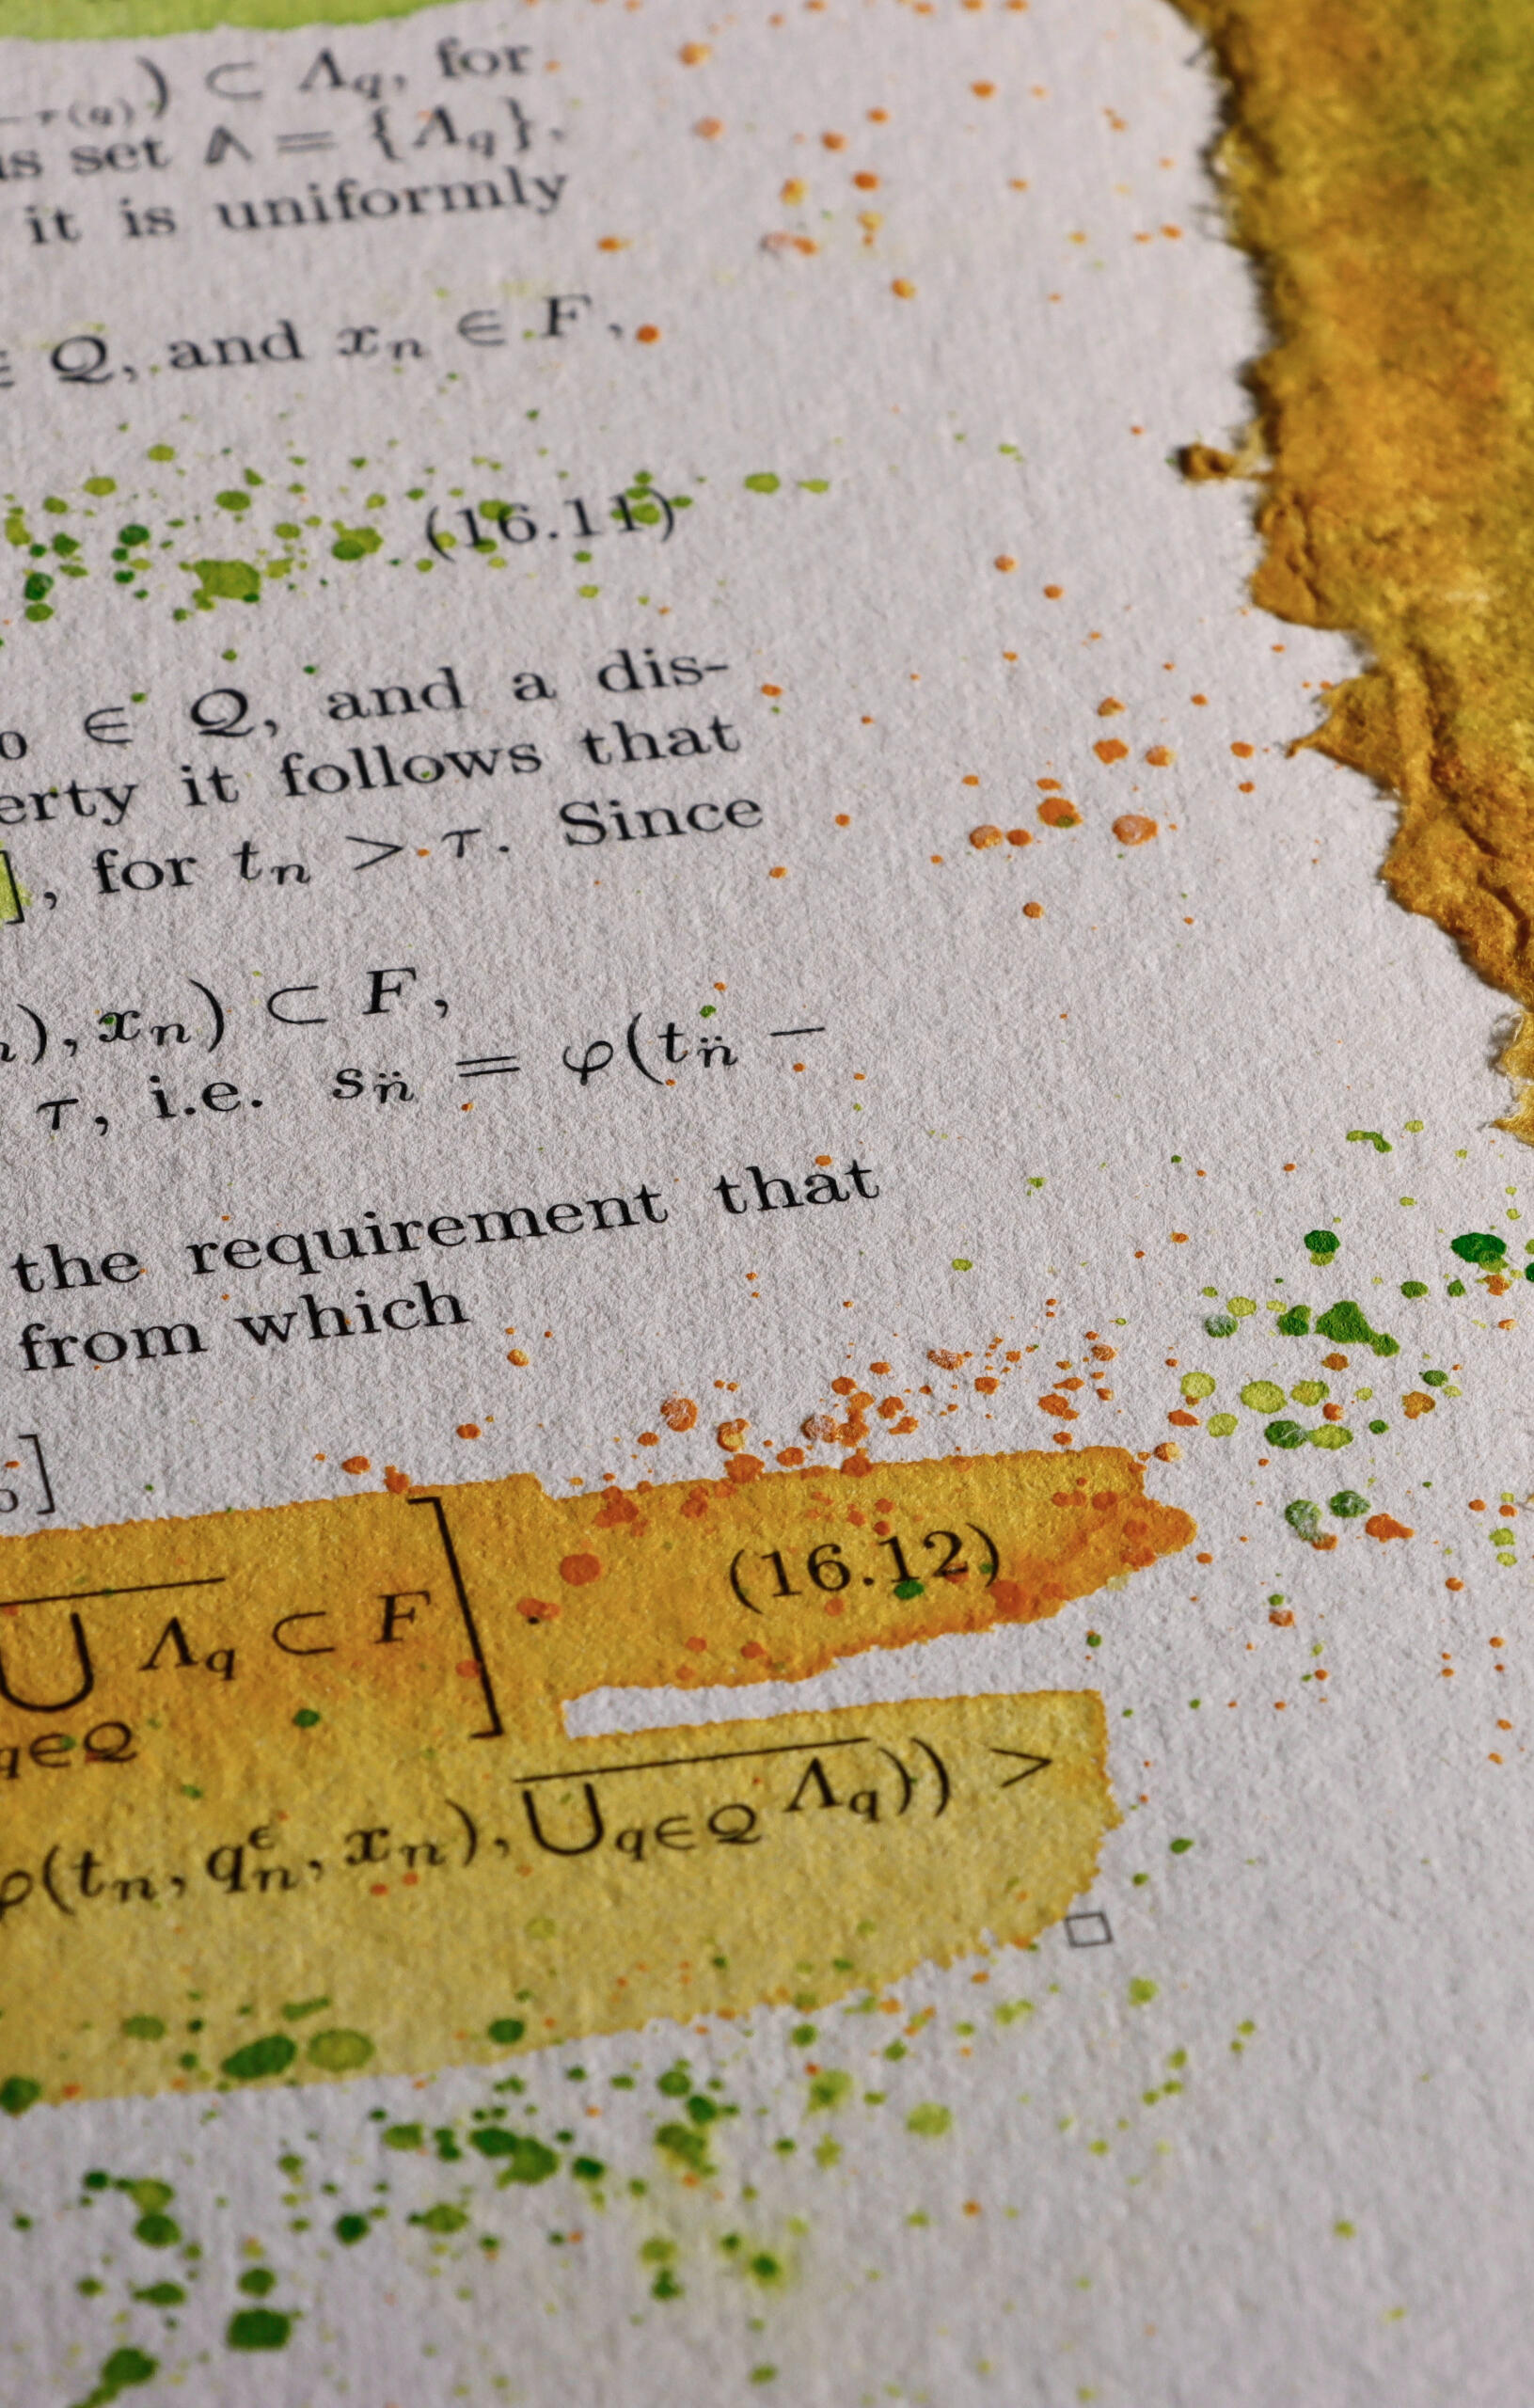 −τ(q)) ⊂ Λq, for
set 𝔸 = {Λq},
it is uniformly
∈ Q, and xn ∈ F,
(16.11)
0 ∈ Q, and a dis-
erty it follows that
], for tn > τ. Since
), xn) ⊂ F,
τ, i.e. sn̈ = φ(tn̈ −
the requirement that
from which
]
⋃ Λq ⊂ F ] . (16.12)
q∈Q
φ(tn, qnϵ, xn), ⋃q∈Q Λq)) >
□